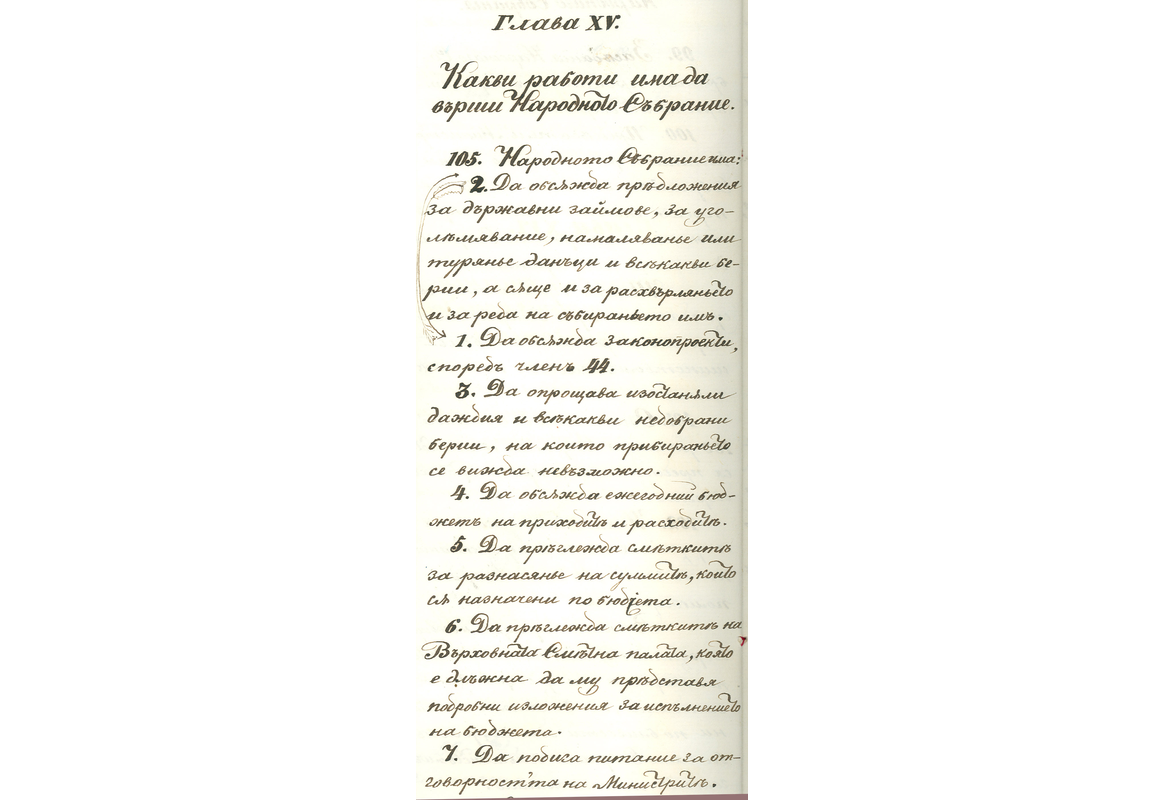 Глава XV.
Какви работи има да
върши Народното Събрание.
105. Народното Събрание има:
2. Да обсѫжда прѣдложения
за държавни займове, за уго-
лѣмявание, намаляванье или
турянье данъци и всѣкакви бе-
рии, а сѫще и за расхвърляньето
и за реда на събираньето имъ.
1. Да обсѫжда законопроекти,
споредъ членъ 44.
3. Да опрощава изостанѫли
даждия и всѣкакви недобрани
берии, на които прибираньето
се вижда невъзможно.
4. Да обсѫжда ежегодний бюд-
жетъ на приходитѣ и расходитѣ.
5. Да прѣглежда смѣткитѣ
за разнасянье на суммитѣ, които
сѫ назначени по бюджета.
6. Да прѣглежда смѣткитѣ на
Върховната Смѣтна палата, която
е длъжна да му прѣдставя
подробни изложения за испълнението
на бюджета.
7. Да подига питание за от-
говорностьта на Министритѣ.